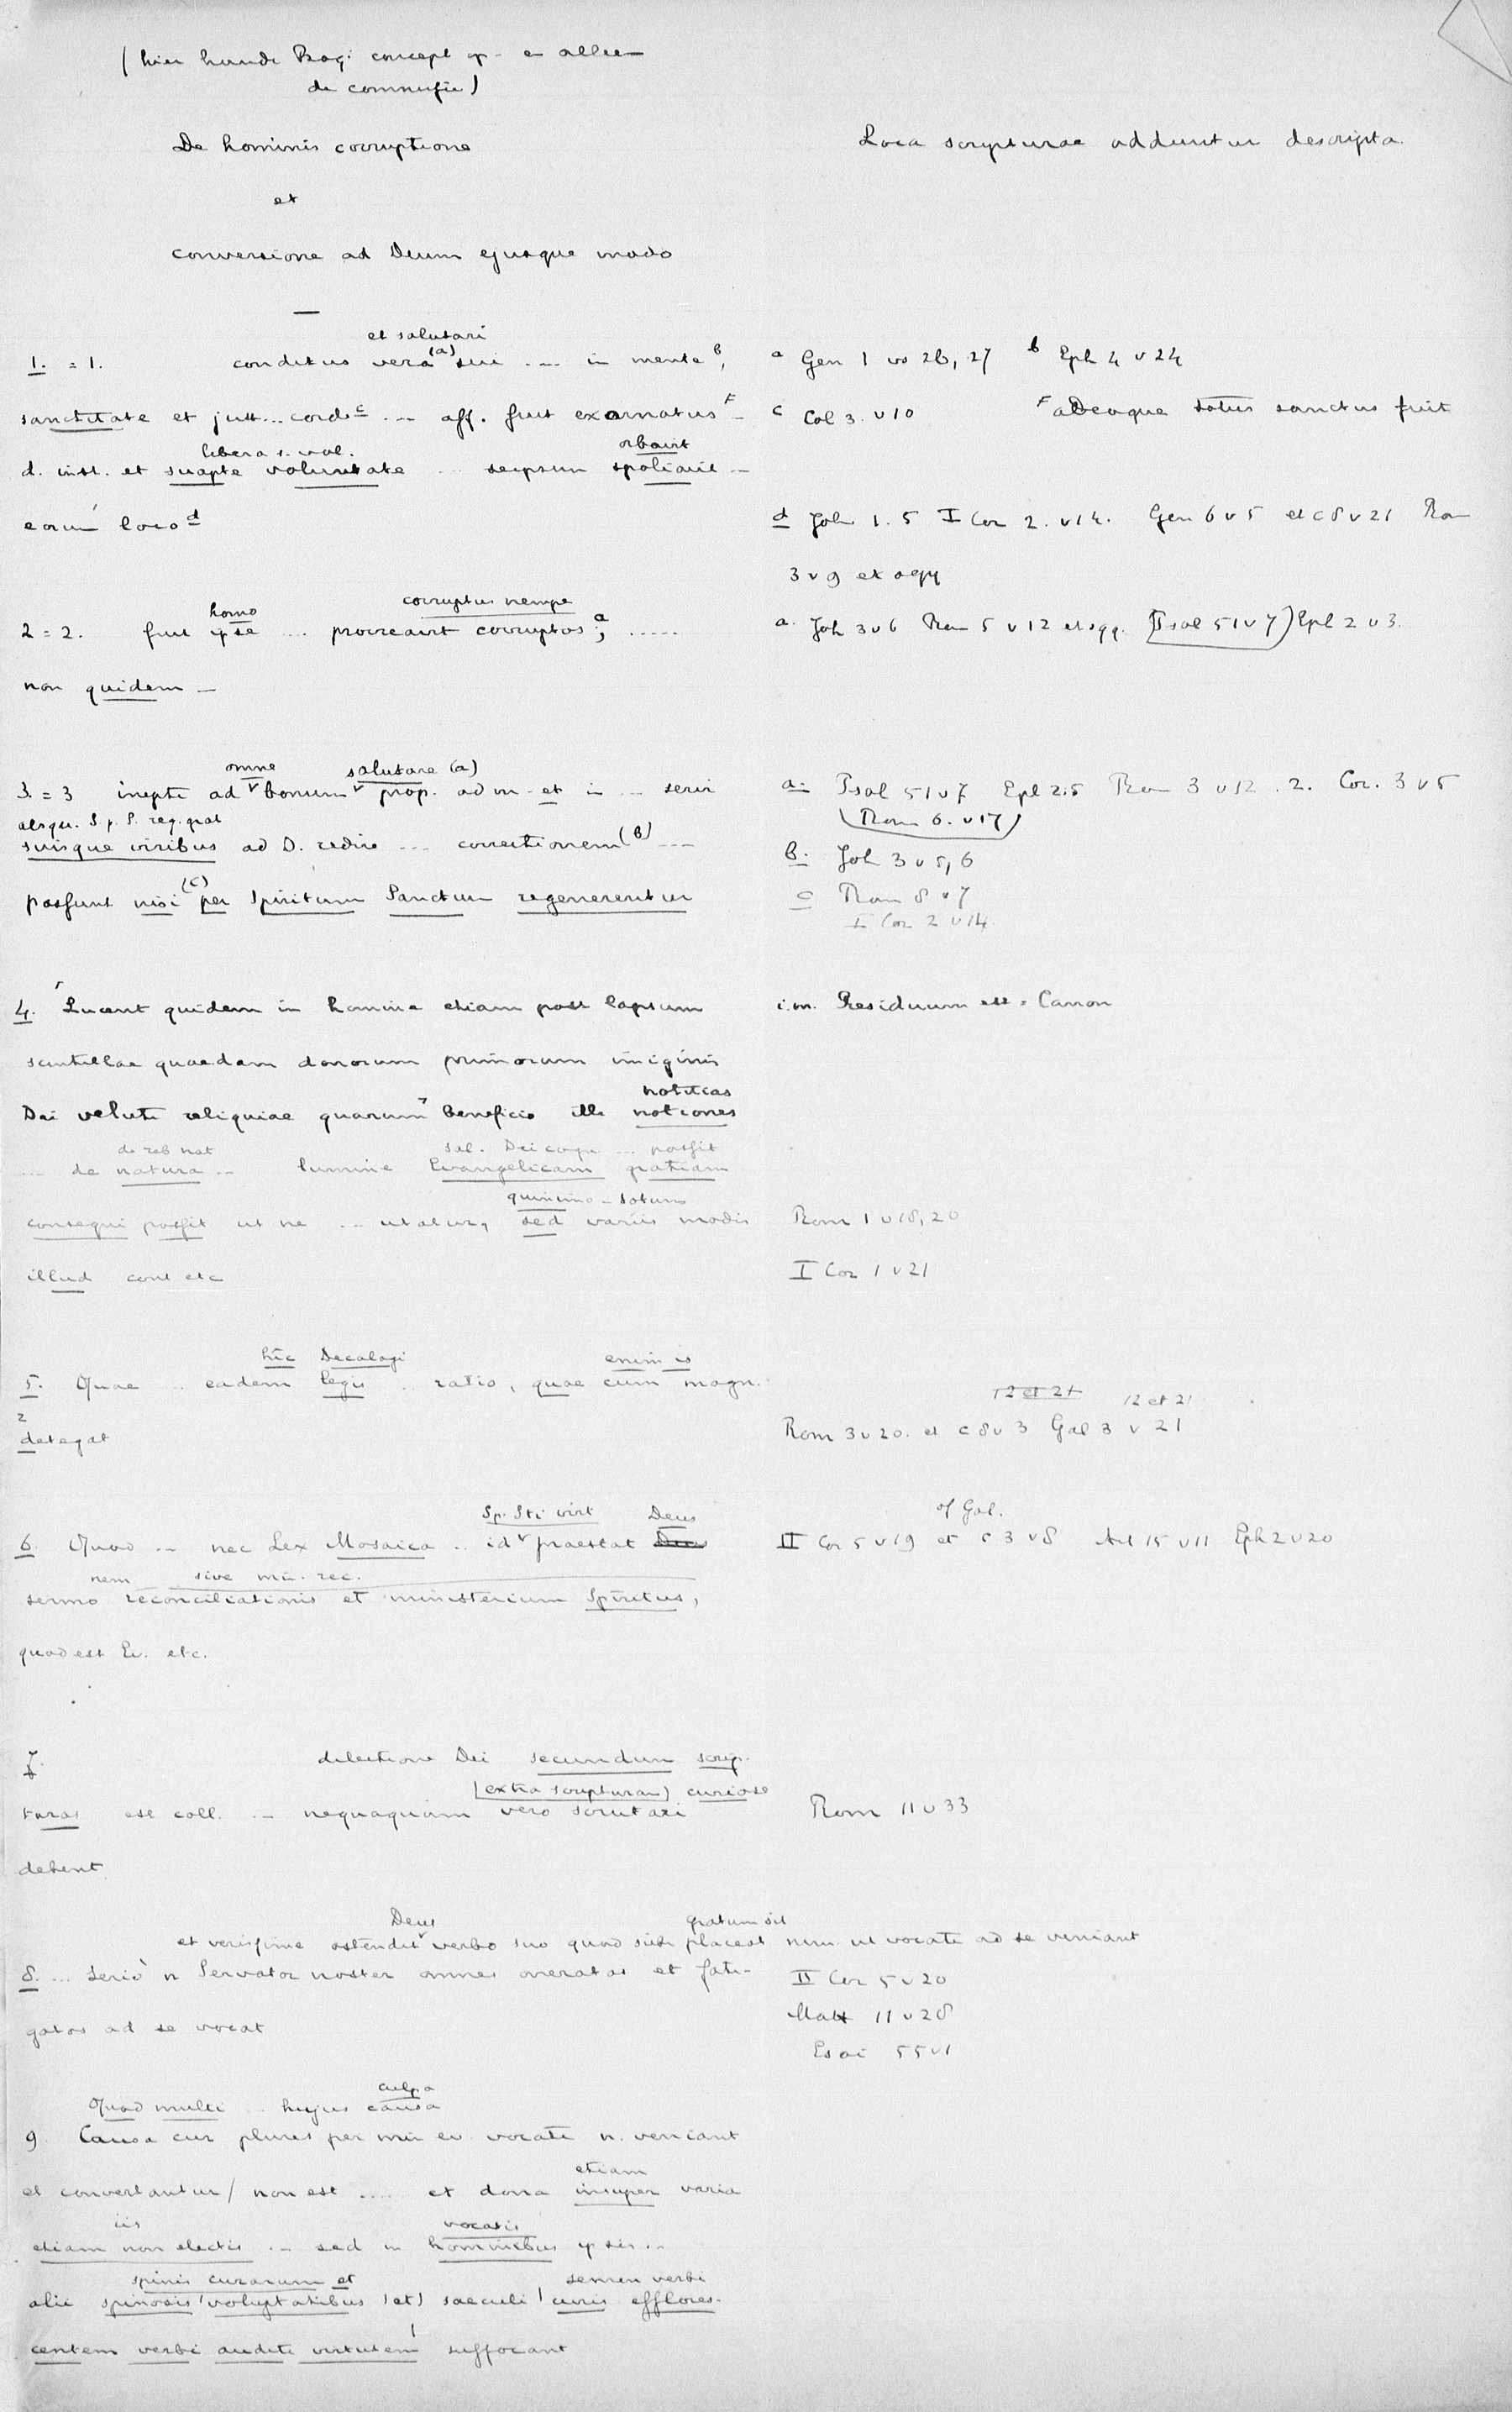 (hier
De hominis corruptione
Loca scripturae adduntur descripta.
et
conversione ad Deum ejusque modo
et salutari
1. = 1. conditus vera (a) sui .... in mente b,
a Gen 1 vs 26, 27 b Eph 4 v 24
sanctitate et just... corde c ... aff. fuit exornatus F -
c Col 3. v 10 F adeoque totus sanctus fuit
libera s. vol. orbavit
d. inst. et suapte voluntate ... seipsum spoliavit -
eorum loco d
d Joh 1. 5 I Cor 2. v 14. Gen 6 v 5 et c 8 v 21 Rom
3 v 9 et sqq
homo corruptus nempe
2 = 2. fuit ipse ... procreavit corruptos a; .....
a. Joh 3 v 6 Rom 5 v 12 et sqq. (Psal 51 v 7) Eph 2 v 3.
non quidem -
omne salutare (a)
3. = 3 inepti ad bonum prop. ad m - et in ... servi
a. Psal 51 v 7 Eph 2.5 Rom 3 v 12 . 2. Cor. 3 v 5
absqu. S p. S. reg. grat
(Rom 6. v 17)
suisque viribus ad D. redire ... correctionem (b) ---
b. Joh 3 v 5, 6
possunt nisi (c) per Spiritum Sanctum regenerentur
c Rom 8 v 7
I Cor 2 v 14.
4. Lucent quidem in homine etiam post lapsum
i.m. Residuum est = Canon
scintillae quaedam donorum primorum imiginis
notitias
Dei veluti reliquiae quarum beneficio ille notiones
de reb nat sal. Dei cogn ... possit
... de natura ... lumine Evangelicam gratiam
quinimo - totum
consequi possit ut ne ... utatur, sed variis modis
Rom 1 v 18, 20
illud cont etc
I Cor 1 v 21
hic Decalogi enim is
5. Quae ... eadem legis .. ratio, quae cum magn.
12 et 21 12 et 21
Rom 3 v 20. et c 8 v 3 Gal 3 v 21
2
detegat
Sp. Sti virt Deus
of Gal.
6. Quod ... nec Lex Mosaica .. id praestat Deus
II Cor 5 v 19 et c 3 v 8 Act 15 v 11 Eph 2 v 20
nem sive mi. rec.
sermo reconciliationis et ministerium Spiritus,
quod est Ev. etc.
7. dilectione Dei secundum scrip-
(extra scripturam) curiose
turas est coll. ... nequaquam vero scrutari
Rom 11 v 33
debent
Deus gratum sit
et verissime ostendit verbo suo quod sibi placeat nim. ut vocati ad se veniant
8. ... Serio n Servator noster omnes oneratos et fati-
II Cor 5 v 20
gatos ad se vocat
Matt 11 v 28
Esai 55 v 1
culpa
Quod multi .. hujus causa
9 Causa cur plures per min ev. vocati n. veniant
etiam
et convertantur / non est .... et dona insuper varia
iis vocatis
etiam non electis ... sed in hominibus ipsis ...
spinis curarum et semen verbi
alii spinosis voluptatibus (et) saeculi curis efflores-
centem verbi auditi virtutem suffocant